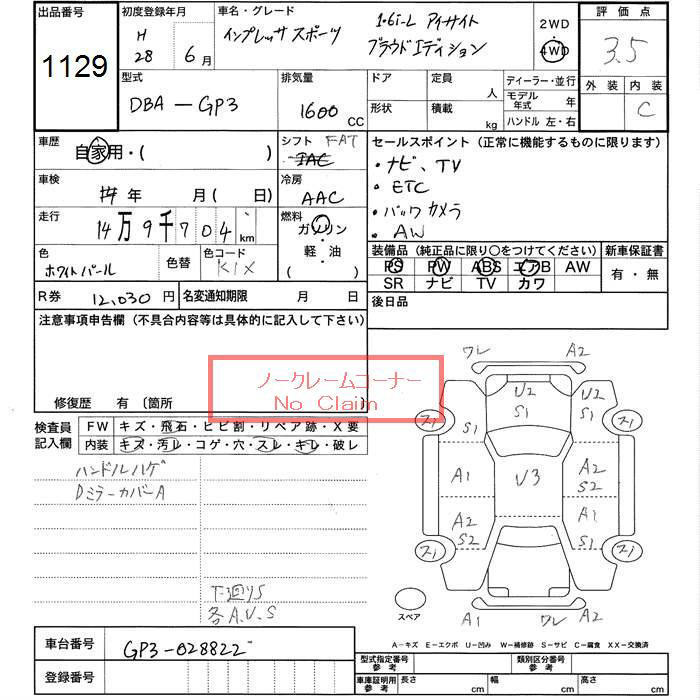 出品番号 初度登録年月 車名・グレード 2WD 評価点
1129 H 28 6月 インプレッサ スポーツ 1.6i-L アイサイト 4WD 3.5
プラウドエディション
外装 内装
型式 排気量 ドア 定員 人 ディーラー・並行
DBA-GP3 1600 CC 形状 積載 kg モデル年式 年 C
ハンドル 左・右
車歴 自家用・( ) シフト FAT セールスポイント(正常に機能するものに限ります)
IAC ・ナビ、TV
車検 年 月( 日) 冷房 AAC ・ETC
走行 14万9千704 km 燃料 ガソリン ・バックカメラ
・AW
色 ホワイトパール 色替 色コード K1X 軽・油 ( )
装備品(純正品に限り〇をつけてください) 新車保証書
PS PW ABS エアB AW 有・無
SR ナビ TV カワ
R券 12,030円 名変通知期限 月 日 後日品
注意事項申告欄(不具合内容等は具体的に記入して下さい)
ノークレームコーナー
No Claim
修復歴 有 〔箇所 〕
検査員記入欄 FW キズ・飛石・ヒビ割・リペア跡・X要
内装 キズ・汚レ・コゲ・穴・スレ・キレ・破レ
ハンドルハゲ
DミラーカバーA
下廻りS
各A.U.S
ワレ A2
U2 U2
S1 S1 S1
スリ スリ
A1 U3 A2
S2
A2 A1
S2 S1
スリ スリ
スペア A1 ワレ A2
A-キズ E-エクボ U-凹み W-補修跡 S-サビ C-腐食 XX-交換済
車台番号 GP3-028822
登録番号
型式指定番号参考 類別区分番号参考
車庫証明用参考 長さ cm 幅 cm 高さ cm